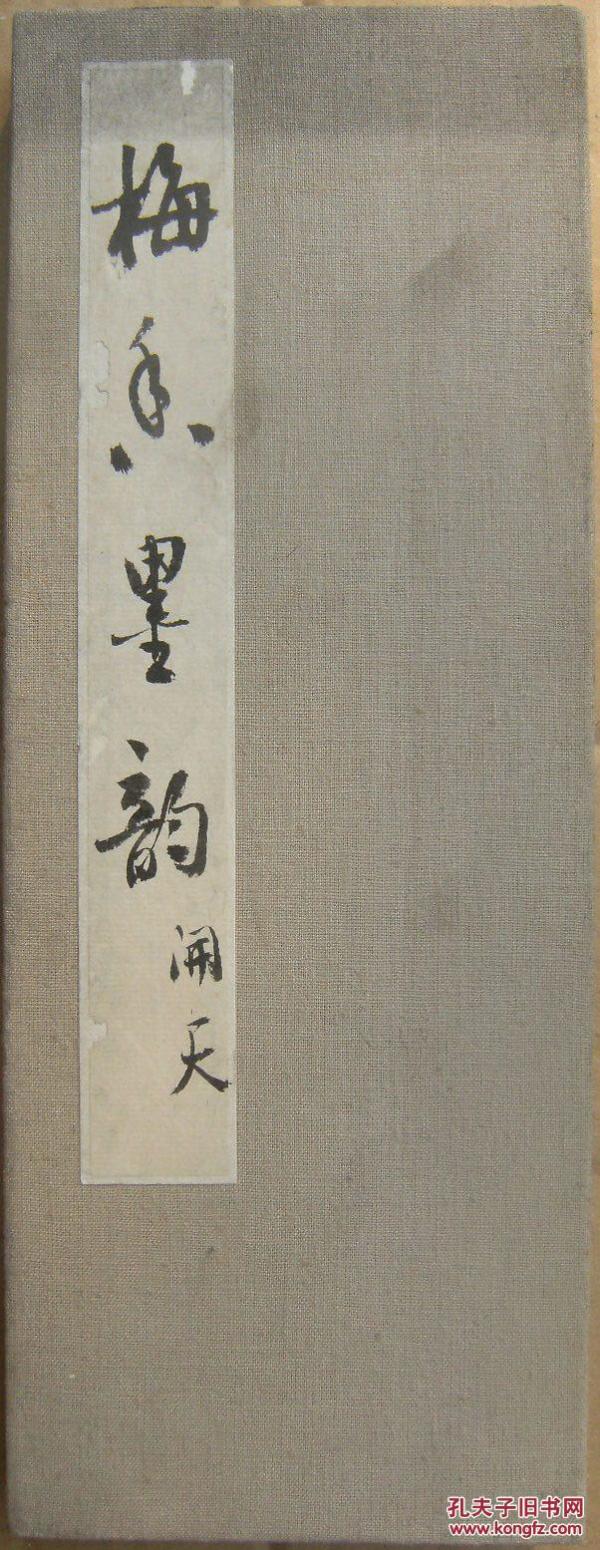 梅香墨韵
開天
孔夫子旧书网
www.kongfz.com